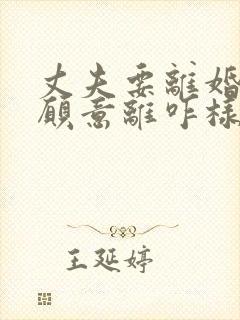 丈夫要離婚
願意離咋樣
王延婷